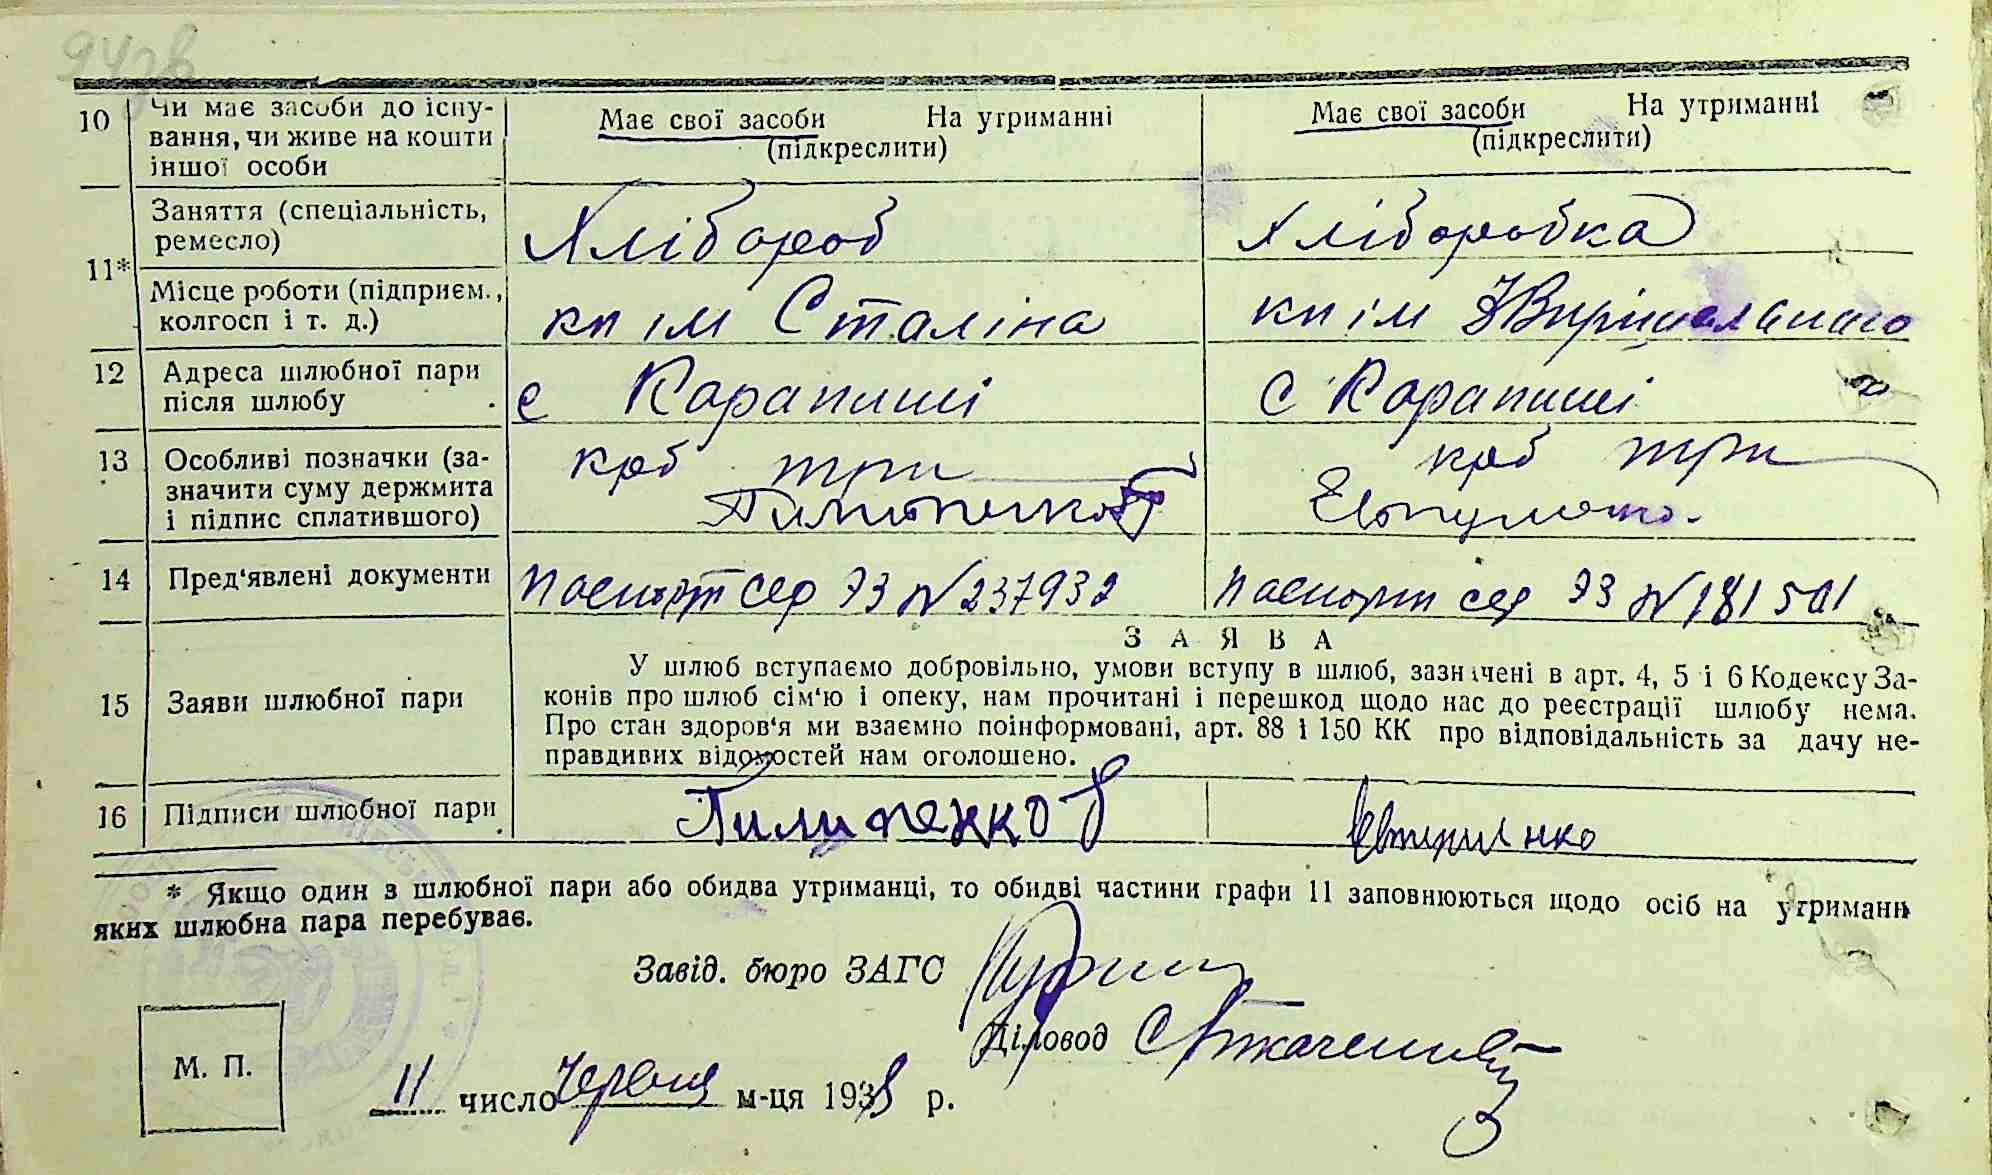 10 Чи має засоби до існу-
вання, чи живе на кошти
іншої особи
Має свої засоби На утриманні
(підкреслити)
Має свої засоби На утриманні
(підкреслити)
11* Заняття (спеціальність,
ремесло)
Хлібороб
Хліборобка
Місце роботи (підприєм.,
колгосп і т. д.)
кп ім Сталіна
кп ім
12 Адреса шлюбної пари
після шлюбу
с Карапиші
с Карапиші
13 Особливі позначки (за-
значити суму держмита
і підпис сплатившого)
крб три
крб три
14 Пред'явлені документи
Паспорт сер ЭЗ № 237932
Паспорт сер ЭЗ № 181501
15 Заяви шлюбної пари
ЗАЯВА
У шлюб вступаємо добровільно, умови вступу в шлюб, зазначені в арт. 4, 5 і 6 Кодексу За-
конів про шлюб сім'ю і опеку, нам прочитані і перешкод щодо нас до реєстрації шлюбу нема.
Про стан здоров'я ми взаємно поінформовані, арт. 88 і 150 КК про відповідальність за дачу не-
правдивих відомостей нам оголошено.
16 Підписи шлюбної пари
Пилипенко
* Якщо один з шлюбної пари або обидва утриманці, то обидві частини графи 11 заповнюються щодо осіб на утриманн
яких шлюбна пара перебуває.
Завід. бюро ЗАГС
Діловод С Ткаченко
М. П.
11 число Червня м-ця 1938 р.